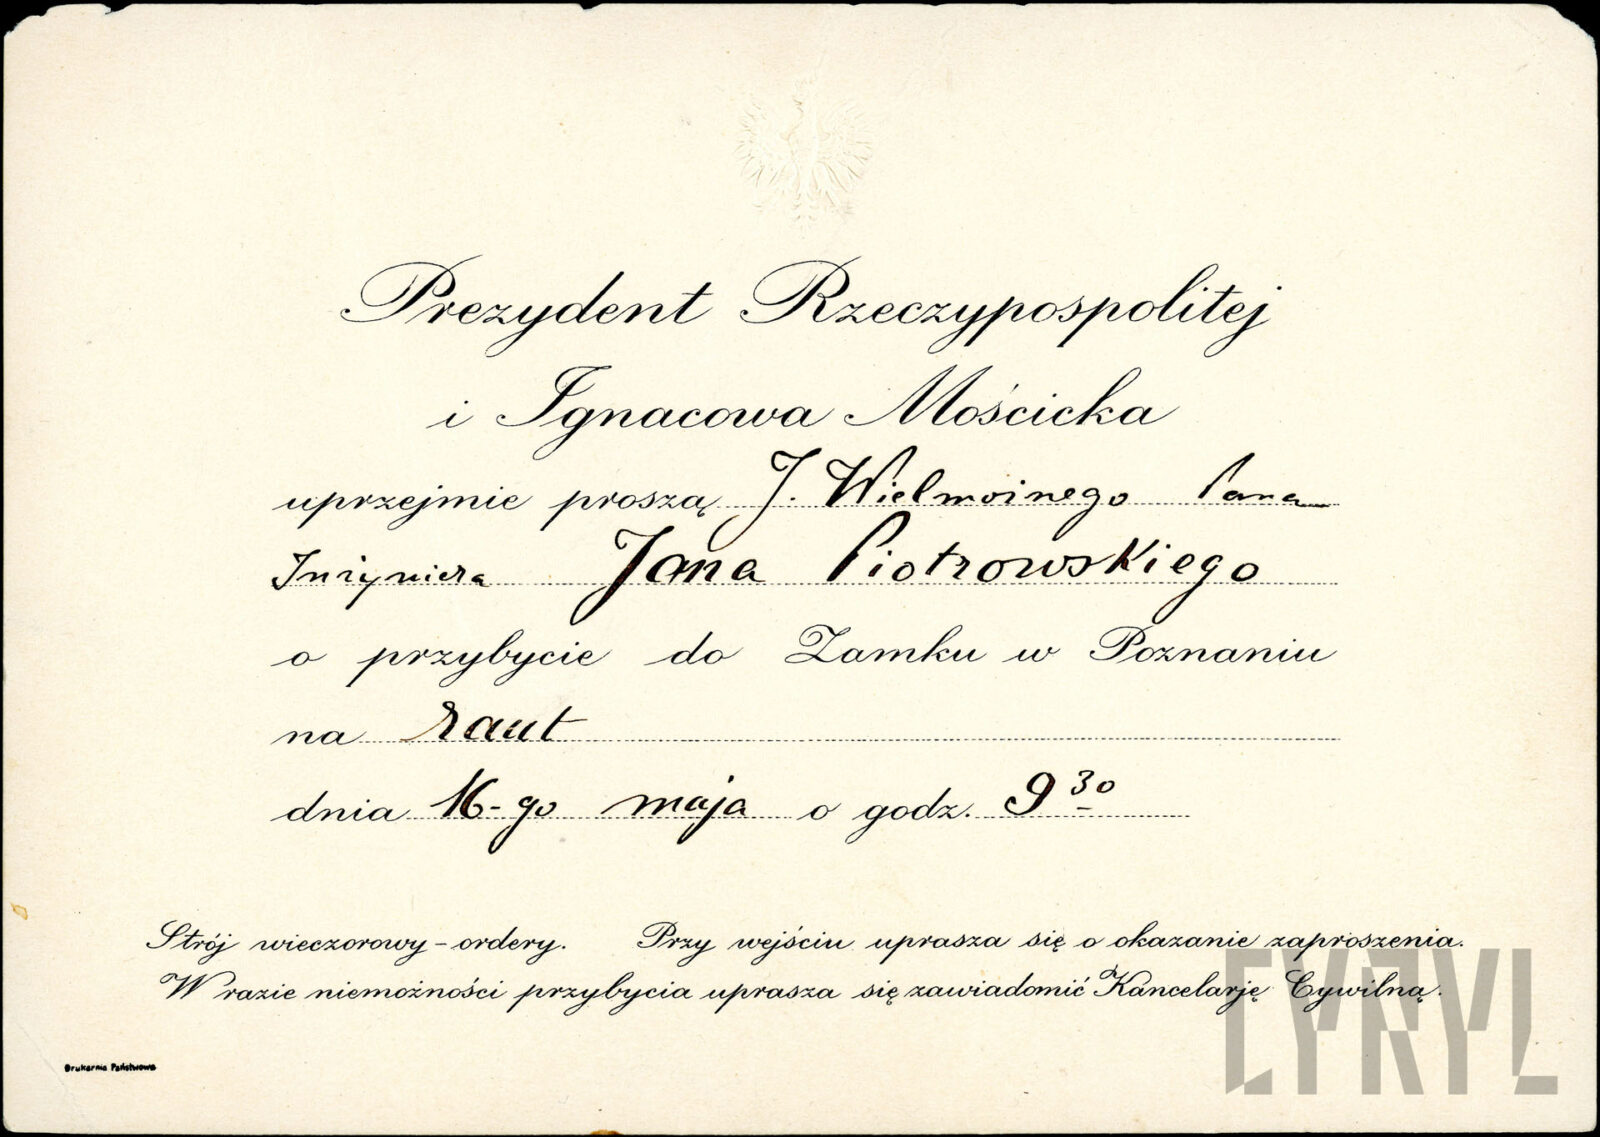 Prezydent Rzeczypospolitej
i Ignacowa Mościcka
uprzejmie proszą J. Wielmożnego Pana
Inżyniera Jana Piotrowskiego
o przybycie do Zamku w Poznaniu
na raut
dnia 16-go maja o godz. 9 30
Strój wieczorowy – ordery. Przy wejściu uprasza się o okazanie zaproszenia.
W razie niemożności przybycia uprasza się zawiadomić Kancelarję Cywilną.
Drukarnia Państwowa
CYRYL